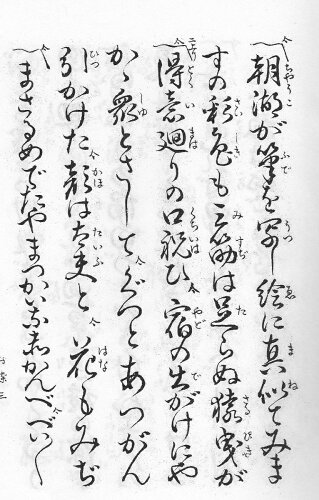 朝湖が筆を写し絵に真似てみま
すの彩色も三筋は足らぬ猿曳が
得意廻りの口祝ひ宿の出がけにや
かゝ衆とさしてぐつとあつがん
引かけた顔は太夫と花もみぢ
まさるめでたやまつかいな赤かんべゞい〳〵